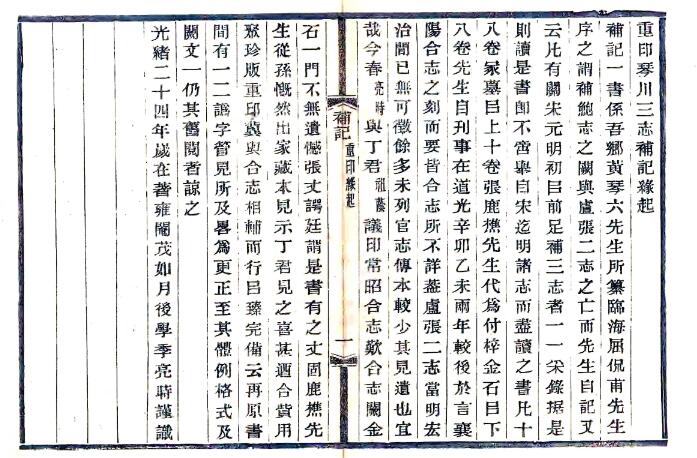 重印琴川三志補記緣起
補記一書係吾鄉黃琴六先生所纂臨海屈侃甫先生
序之謂補鮑志之闕與盧張二志之亡而先生自記又
云凡有關宋元明初㠯前足補三志者一一采錄据是
則讀是書卽不啻舉自宋迄明諸志而盡讀之書凡十
八卷家嘉㠯上十卷張鹿樵先生代爲付梓金石㠯下
八卷先生自刊事在道光辛卯乙未兩年較後於言襄
陽合志之刻而要皆合志所不詳葢盧張二志當明宏
治閒已無可徵餘多未列官志傳本較少其見遺也宜
哉今春亮時與丁君祖蔭議印常昭合志歎合志闕金
補記 重印緣起 一
石一門不無遺憾張丈諤廷謂是書有之丈固鹿樵先
生從孫慨然出家藏本見示丁君見之喜甚迺合貲用
聚珍版重印冀與合志相輔而行㠯臻完備云再原書
間有一二譌字管見所及畧爲更正至其體例格式及
闕文一仍其舊閱者諒之
光緒二十四年歲在著雍閹茂如月後學季亮時謹識